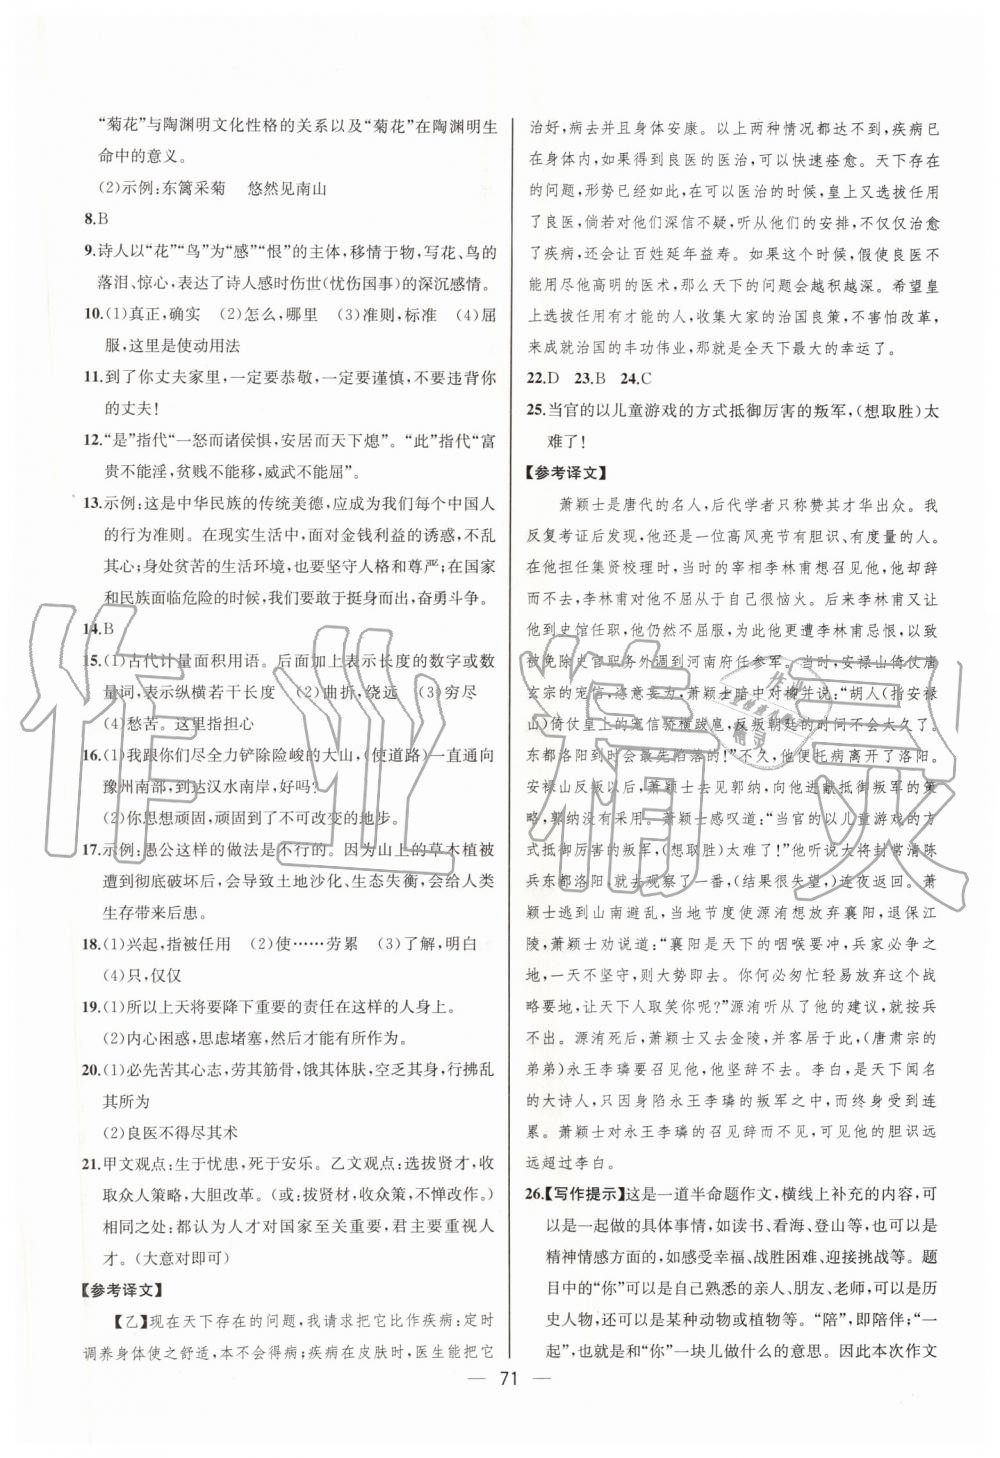 “菊花”与陶渊明文化性格的关系以及“菊花”在陶渊明生
命中的意义。
(2)示例:东篱采菊　悠然见南山
8.B
9.诗人以“花”“鸟”为“感”“恨”的主体,移情于物,写花、鸟的
落泪、惊心,表达了诗人感时伤世(忧伤国事)的深沉感情。
10.(1)真正,确实　(2)怎么,哪里　(3)准则,标准　(4)屈
服,这里是使动用法
11.到了你丈夫家里,一定要恭敬,一定要谨慎,不要违背你
的丈夫!
12.“是”指代“一怒而诸侯惧,安居而天下熄”。“此”指代“富
贵不能淫,贫贱不能移,威武不能屈”。
13.示例:这是中华民族的传统美德,应成为我们每个中国人
的行为准则。在现实生活中,面对金钱利益的诱惑,不乱
其心;身处贫苦的生活环境,也要坚守人格和尊严;在国家
和民族面临危险的时候,我们要敢于挺身而出,奋勇斗争。
14.B
15.(1)古代计量面积用语。后面加上表示长度的数字或数
量词,表示纵横若干长度　(2)曲折,绕远　(3)穷尽
(4)愁苦。这里指担心
16.(1)我跟你们尽全力铲除险峻的大山,(使道路)一直通向
豫州南部,到达汉水南岸,好吗?
(2)你思想顽固,顽固到了不可改变的地步。
17.示例:愚公这样的做法是不行的。因为山上的草木植被
遭到彻底破坏后,会导致土地沙化、生态失衡,会给人类
生存带来后患。
18.(1)兴起,指被任用　(2)使……劳累　(3)了解,明白
(4)只,仅仅
19.(1)所以上天将要降下重要的责任在这样的人身上。
(2)内心困惑,思虑堵塞,然后才能有所作为。
20.(1)必先苦其心志,劳其筋骨,饿其体肤,空乏其身,行拂乱
其所为
(2)良医不得尽其术
21.甲文观点:生于忧患,死于安乐。乙文观点:选拔贤才,收
取众人策略,大胆改革。(或:拔贤材,收众策,不惮改作。)
相同之处:都认为人才对国家至关重要,君主要重视人
才。(大意对即可)
【参考译文】
【乙】现在天下存在的问题,我请求把它比作疾病:定时
调养身体使之舒适,本不会得病;疾病在皮肤时,医生能把它
治好,病去并且身体安康。以上两种情况都达不到,疾病已
在身体内,如果得到良医的医治,可以快速痊愈。天下存在
的问题,形势已经如此,在可以医治的时候,皇上又选拔任用
了良医,倘若对他们深信不疑,听从他们的安排,不仅仅治愈
了疾病,还会让百姓延年益寿。如果这个时候,使良医不
能用尽他高明的医术,那么天下的问题会越积越深。希望皇
上选拔任用有才能的人,收集大家的治国良策,不害怕改革,
来成就治国的丰功伟业,那就是全天下最大的幸运了。
22.D　23.B　24.C
25.当官的以儿童游戏的方式抵御厉害的叛军,(想取胜)太
难了!
【参考译文】
萧颖士是唐代的名人,后代学者只称赞其才华出众。我
反复考证后发现,他还是一位高风亮节有胆识、有度量的人。
在他担任集贤校理时,当时的宰相李林甫想召见他,他却辞
而不去,李林甫对他不屈从于自己很恼火。后来李林甫又让
他到史馆任职,他仍然不屈服,为此他更遭李林甫忌恨,以致
被免除史官职务外调到河南府任参军。当时,安禄山倚仗唐
玄宗的宠信,恣意妄为,萧颖士暗中对柳并说:“胡人(指安禄
山)倚仗皇上的宠信骄横跋扈,反叛朝廷的时间不会太久了。
东都洛阳到时会是最先陷落的!”不久,他便托病离开了洛阳。
安禄山反叛以后,萧颖士去见郭纳,向他进献抵御叛军的策
略,郭纳没有采用。萧颖士感叹道:“当官的以儿童游戏的方
式抵御厉害的叛军,(想取胜)太难了!”他听说大将封常清陈
兵东都洛阳,就去观察了一番,(结果很失望,)连夜返回。萧
颖士逃到山南避乱,当地节度使源洧想放弃襄阳,退保江
陵,萧颖士劝说道:“襄阳是天下的咽喉要冲,兵家必争之
地,一天不坚守,则大势即去。你何必匆忙轻易放弃这个战
略要地,让天下人取笑你呢?”源洧听从了他的建议,就按兵
不出。源洧死后,萧颖士又去金陵,(唐肃宗的
弟弟)永王李璘要召见他,他坚辞不见。李白,是天下闻名
的大诗人,只因身陷永王李璘的叛军之中,而终身受到连
累。萧颖士对永王李璘的召见辞而不见,他的胆识远
远超过李白。
26.【写作提示】这是一道半命题作文,横线上补充的内容,可
以是一起做的具体事情,如读书、看海、登山等,也可以是
精神情感方面的,如感受幸福、战胜困难、迎接挑战等。题
目中的“你”可以是自己熟悉的亲人、朋友、老师,可以是历
史人物,还可以是某种动物或植物。“陪”,即陪伴;“一
起”,也就是和“你”一块儿做什么的意思。因此本次作文
71
作业精灵